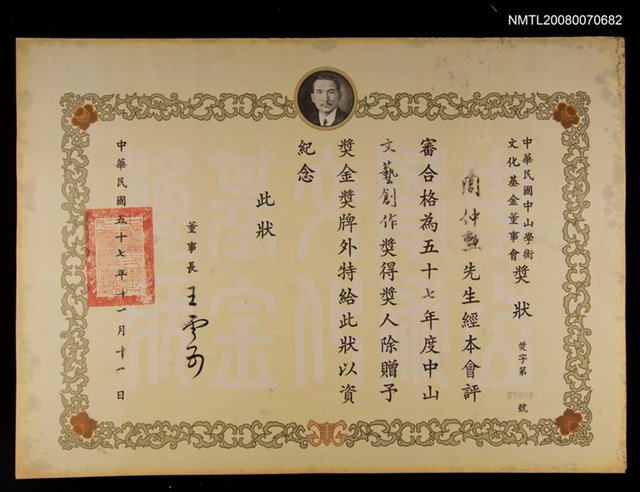 NMTL20080070682
中華民國中山學術
文化基金董事會
獎狀
獎字第
號
周仲勲先生經本會評
審合格為五十七年度中山
文藝創作獎得獎人除贈予
獎金獎牌外特給此狀以資
紀念
此狀
董事長 王雲五
中華民國五十七年十一月十一日